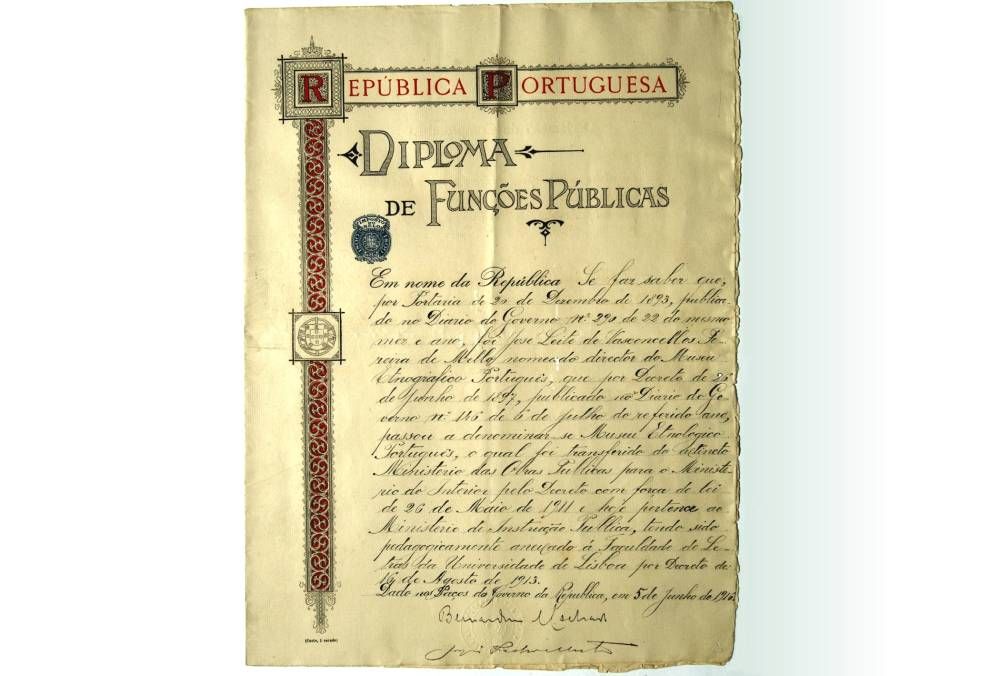 REPÚBLICA PORTUGUESA
DIPLOMA
DE FUNÇÕES PÚBLICAS
Em nome da República Se faz saber que,
por Portaria de 20 de Dezembro de 1893, publica-
do no Diario do Governo nº 290 de 22 do mesmo
mez e ano, foi José Leite de Vasconcellos Pe-
reira de Mello nomeado director do Museu
Etnografico Português, que por Decreto de 26
de Junho de 1897, publicado no Diario do Go-
verno nº 146 de 6 de julho do referido ano,
passou a denominar se Museu Etnologico
Português, o qual foi transferido do extincto
Ministerio das Obras Publicas para o Ministe-
rio do Interior pelo Decreto com força de lei
de 26 de Maio de 1911 e hoje pertence ao
Ministerio de Instrução Publica, tendo sido
pedagogicamente anexado á Faculdade de Le-
tras da Universidade de Lisboa por Decreto de
de Agosto de 1913.
Dado nos Paços do Governo da Republica, em 5 de Junho de 1916.
Bernardino Machado